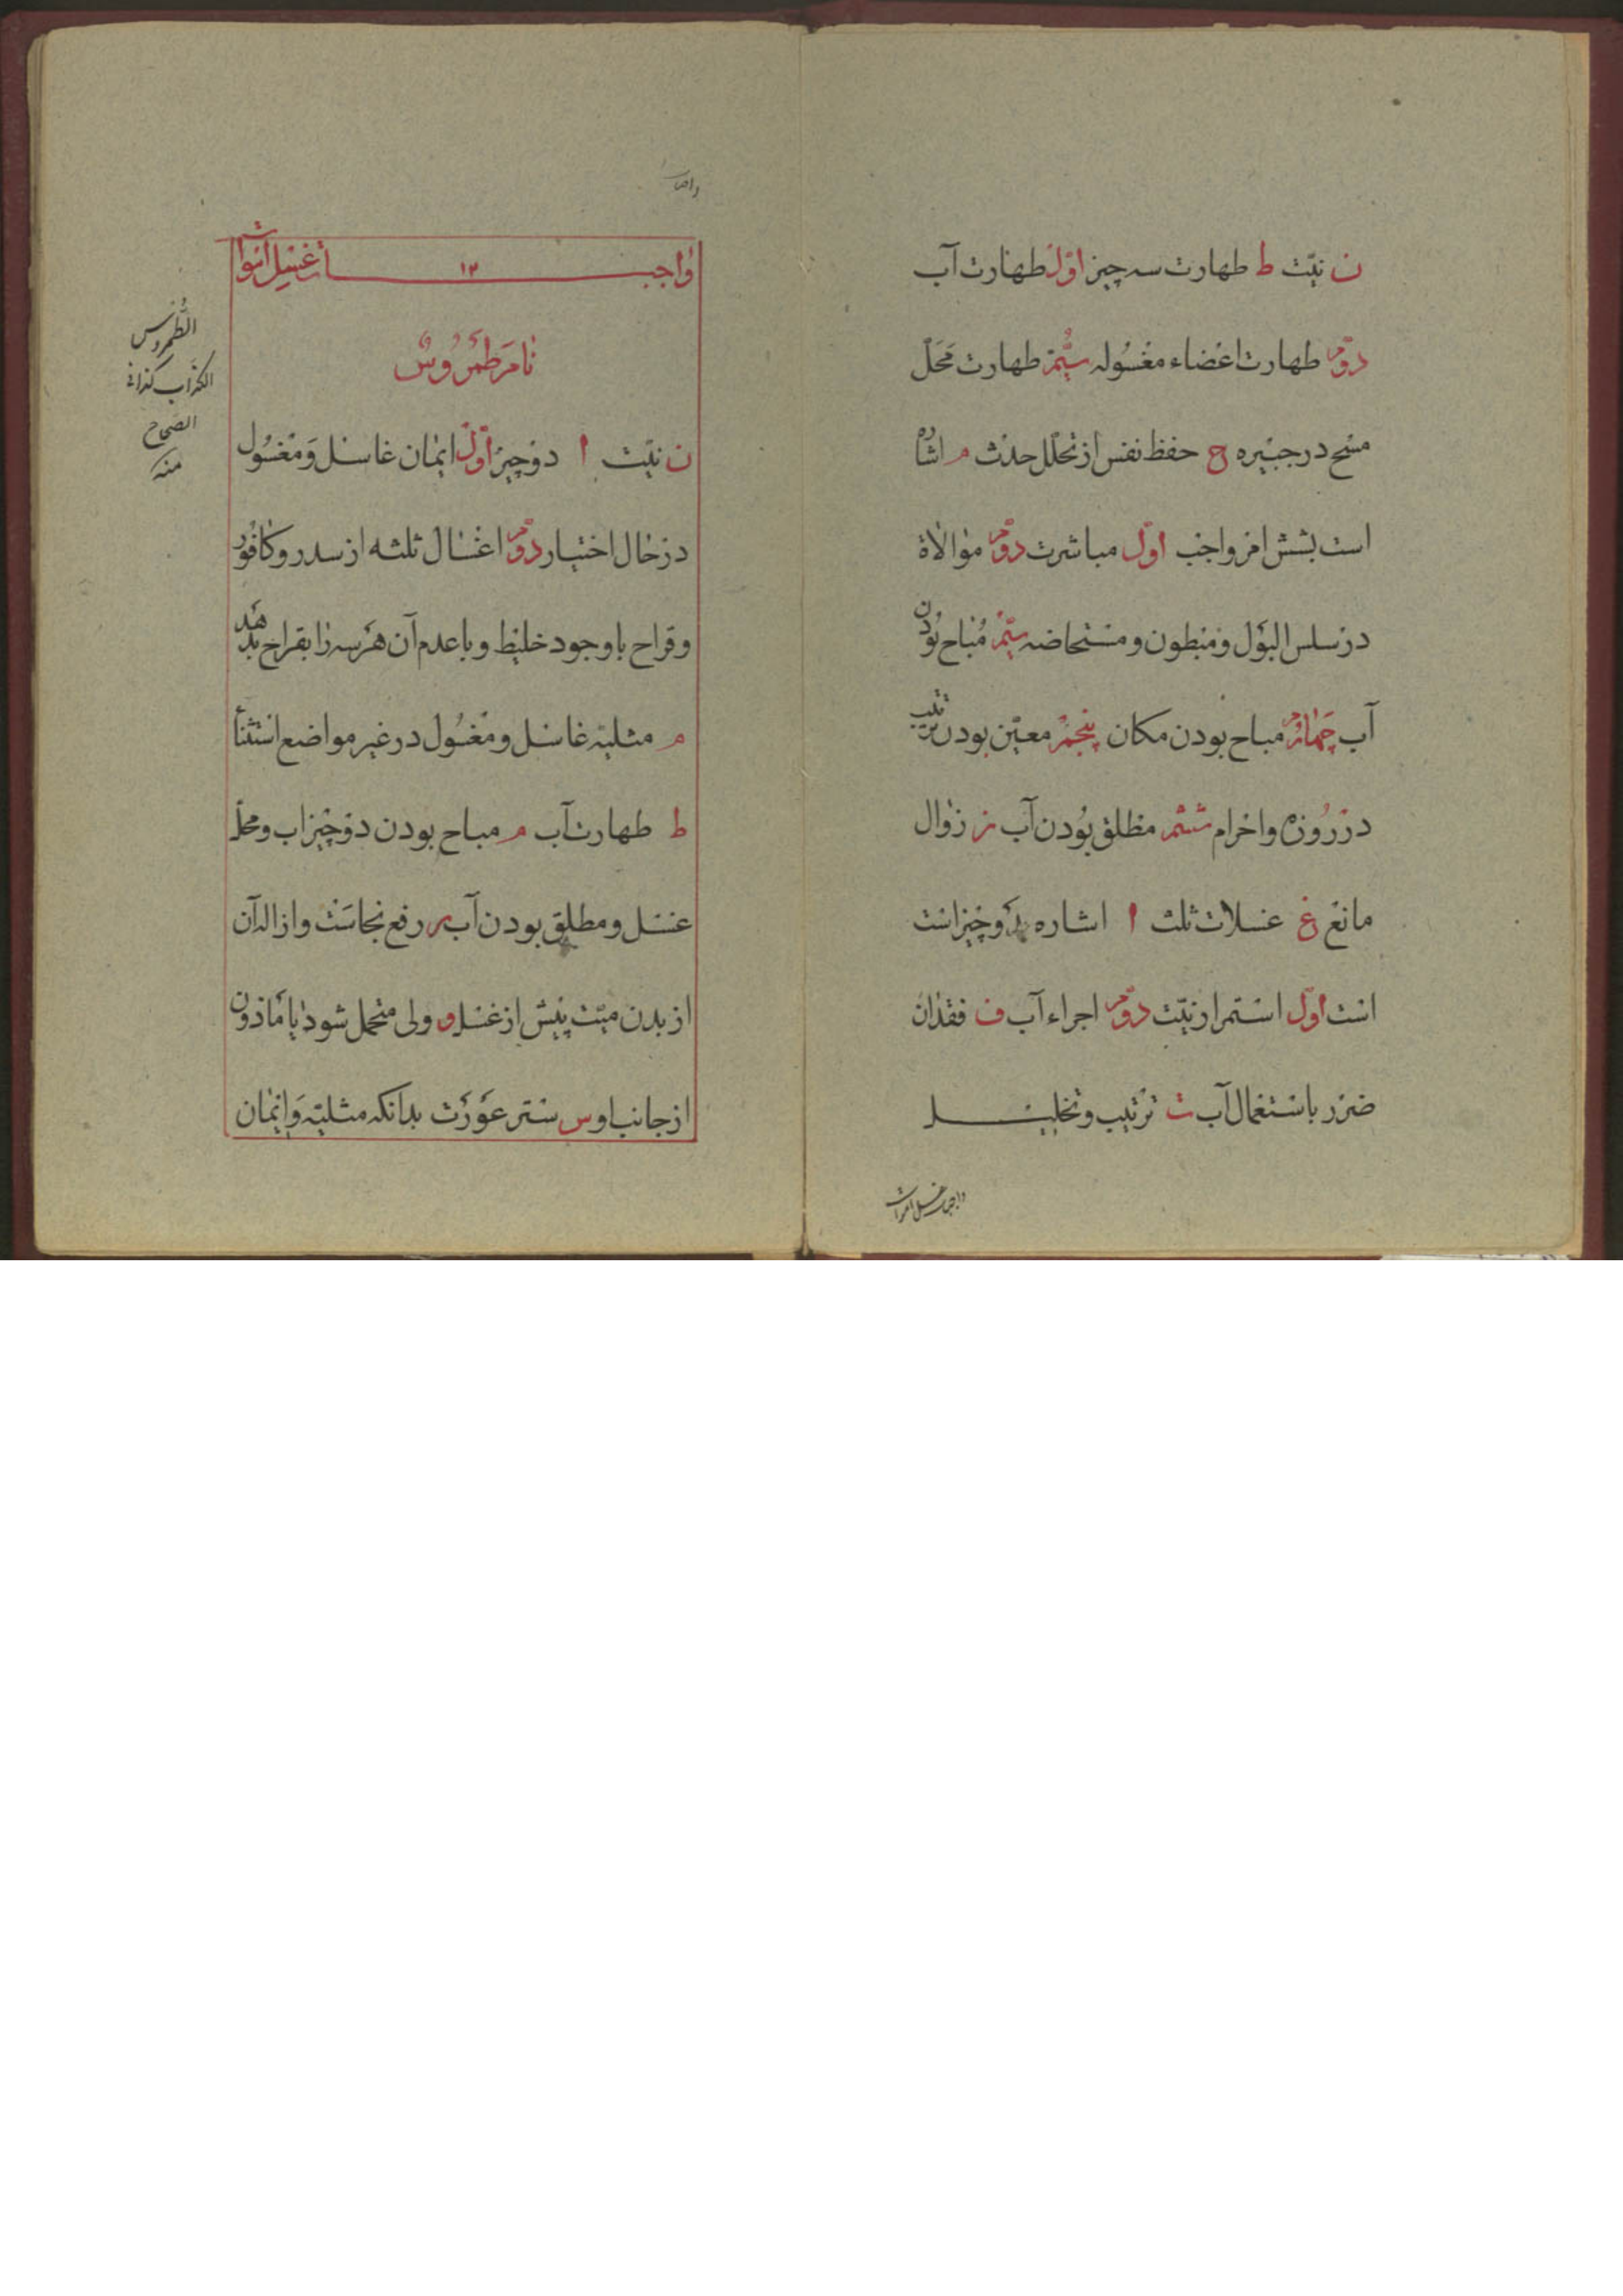 ن نیّت ط طهارت سه چیز اوّل طهارت آب
دوّم طهارت اعضاء مغسُوله سیُّم طهارت مَحَلّ
مسْح در جبیره ح حفظ نفس از تخلّل حدَث م اشاره
است بشش امر واجب اوّل مباشرت دوّم موٰالاة
در سلس البَول و مبْطون و مستحاضه سیّم مُباح بُودن
آب چَهارُم مباح بودن مکان پنجُم معیّن بودن ترتیب
در رُوزه و احرام ششم مطلق بُودن آب ز زوٰال
مانع غ غسلات ثلث ا اشاره بدو چیز است
است اوّل استمرار نیّت دوّم اجراء آب ف فقدٰان
ضرر باستعمال آب ت ترتیب و تخلیل
واجبات غسل اموات
واجبات غسل اموات
١٣
نٰامَ رَطمْرُوسٌ
ن نیّت ا دو چیز اوّل ایمان غاسل وَ مغسُول
در حٰال اختیار دوّم اغسال ثلثه از سدر و کافُور
و قراح با وجود خلیط و با عدم آن هَر سه را بقراح بدهَد
م مثلیّة غاسل و مغسُول در غیر مواضع استثنأ
ط طهارت آب م مباح بودن دو چیز اب و محلّ
غسل و مطلق بودن آب ر رفع نجاسَت و ازالۀ آن
از بدن میّت پیش از غسل و ولی متحمل شود یٰا مَأذون
از جانب او س ستر عَورَت بدٰانکه مثلیّة وَ ایمٰان
الطُّمروس
الکذّاب کذا فی
الصّحاح
منه